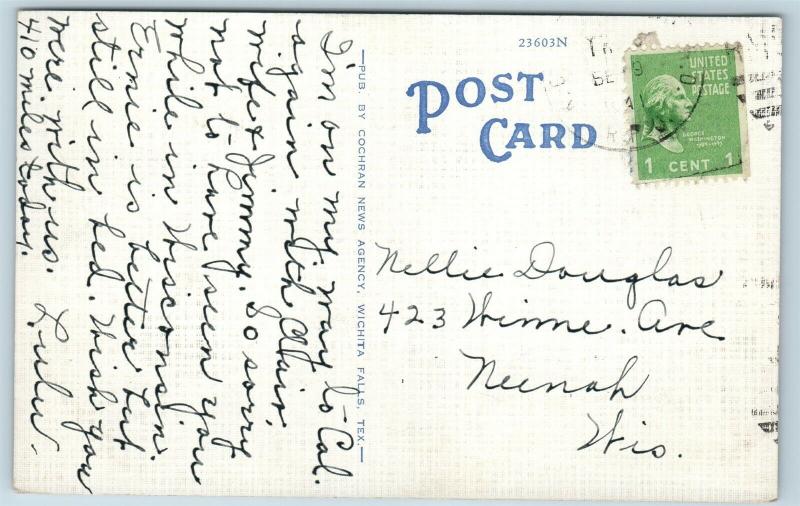 I'm on my way to Cal.
again with
wife & Jimmy. So sorry
not to have seen you
while in Wisconsin.
Ernie is better but
still in bed. Wish you
were with us.
410 miles today.
Lulu.
PUB. BY COCHRAN NEWS AGENCY, WICHITA FALLS, TEX.
23603N
POST
CARD
UNITED
STATES
POSTAGE
GEORGE
WASHINGTON
1 CENT 1
Nellie Douglas
423 Winne. Ave
Neenah
Wis.